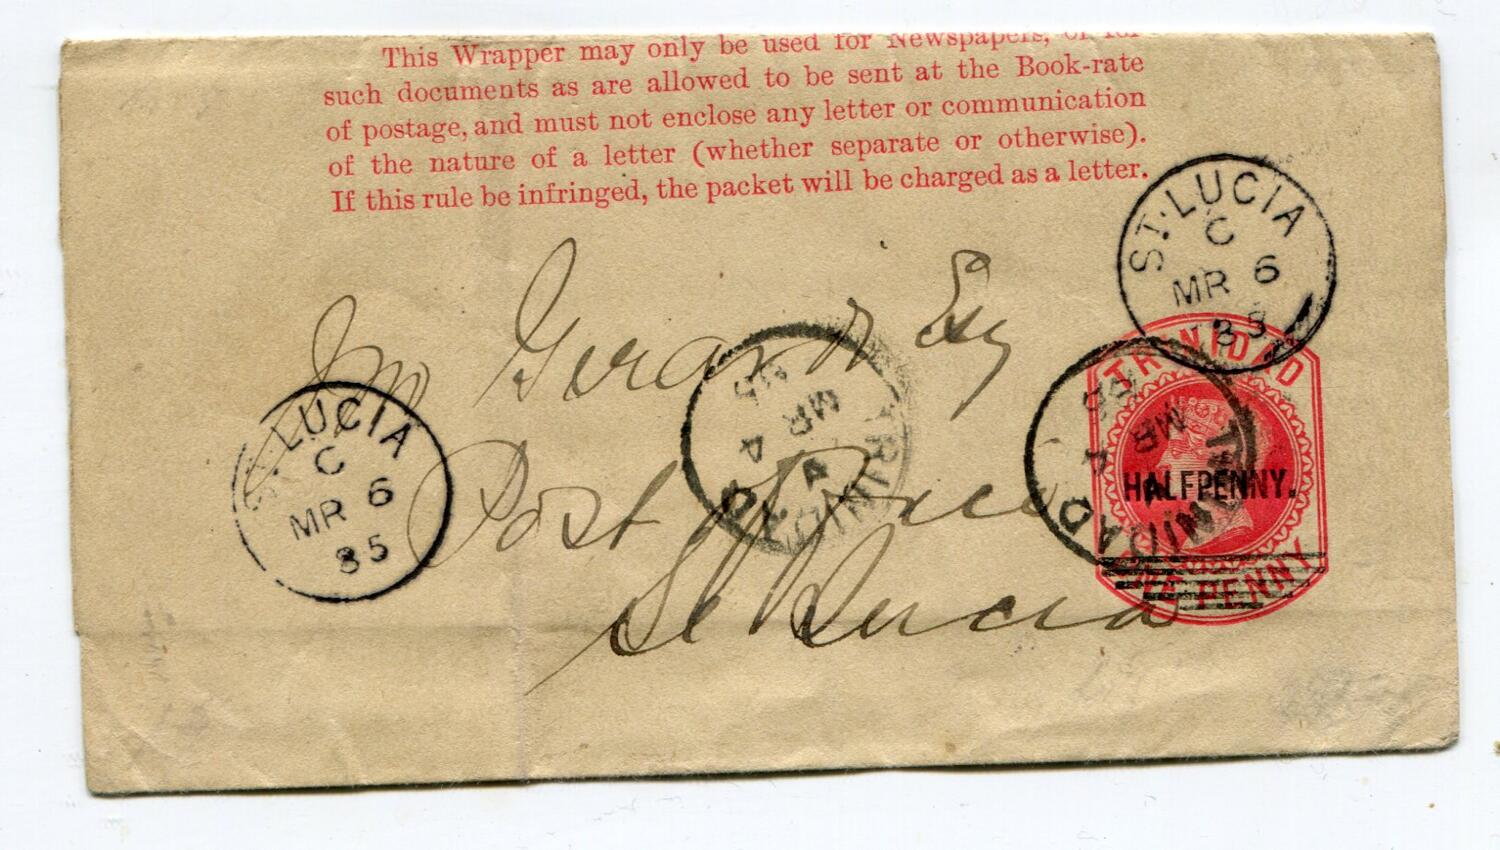 This Wrapper may only be used for Newspapers, or for
such documents as are allowed to be sent at the Book-rate
of postage, and must not enclose any letter or communication
of the nature of a letter (whether separate or otherwise).
If this rule be infringed, the packet will be charged as a letter.
ST. LUCIA
C
MR 6
85
TRINIDAD
HALFPENNY.
ONE PENNY
Jno Gerard Esq
Post Office
St Lucia
ST. LUCIA
C
MR 6
85
TRINIDAD
A
MR 4
85
TRINIDAD
A
MR 4
85